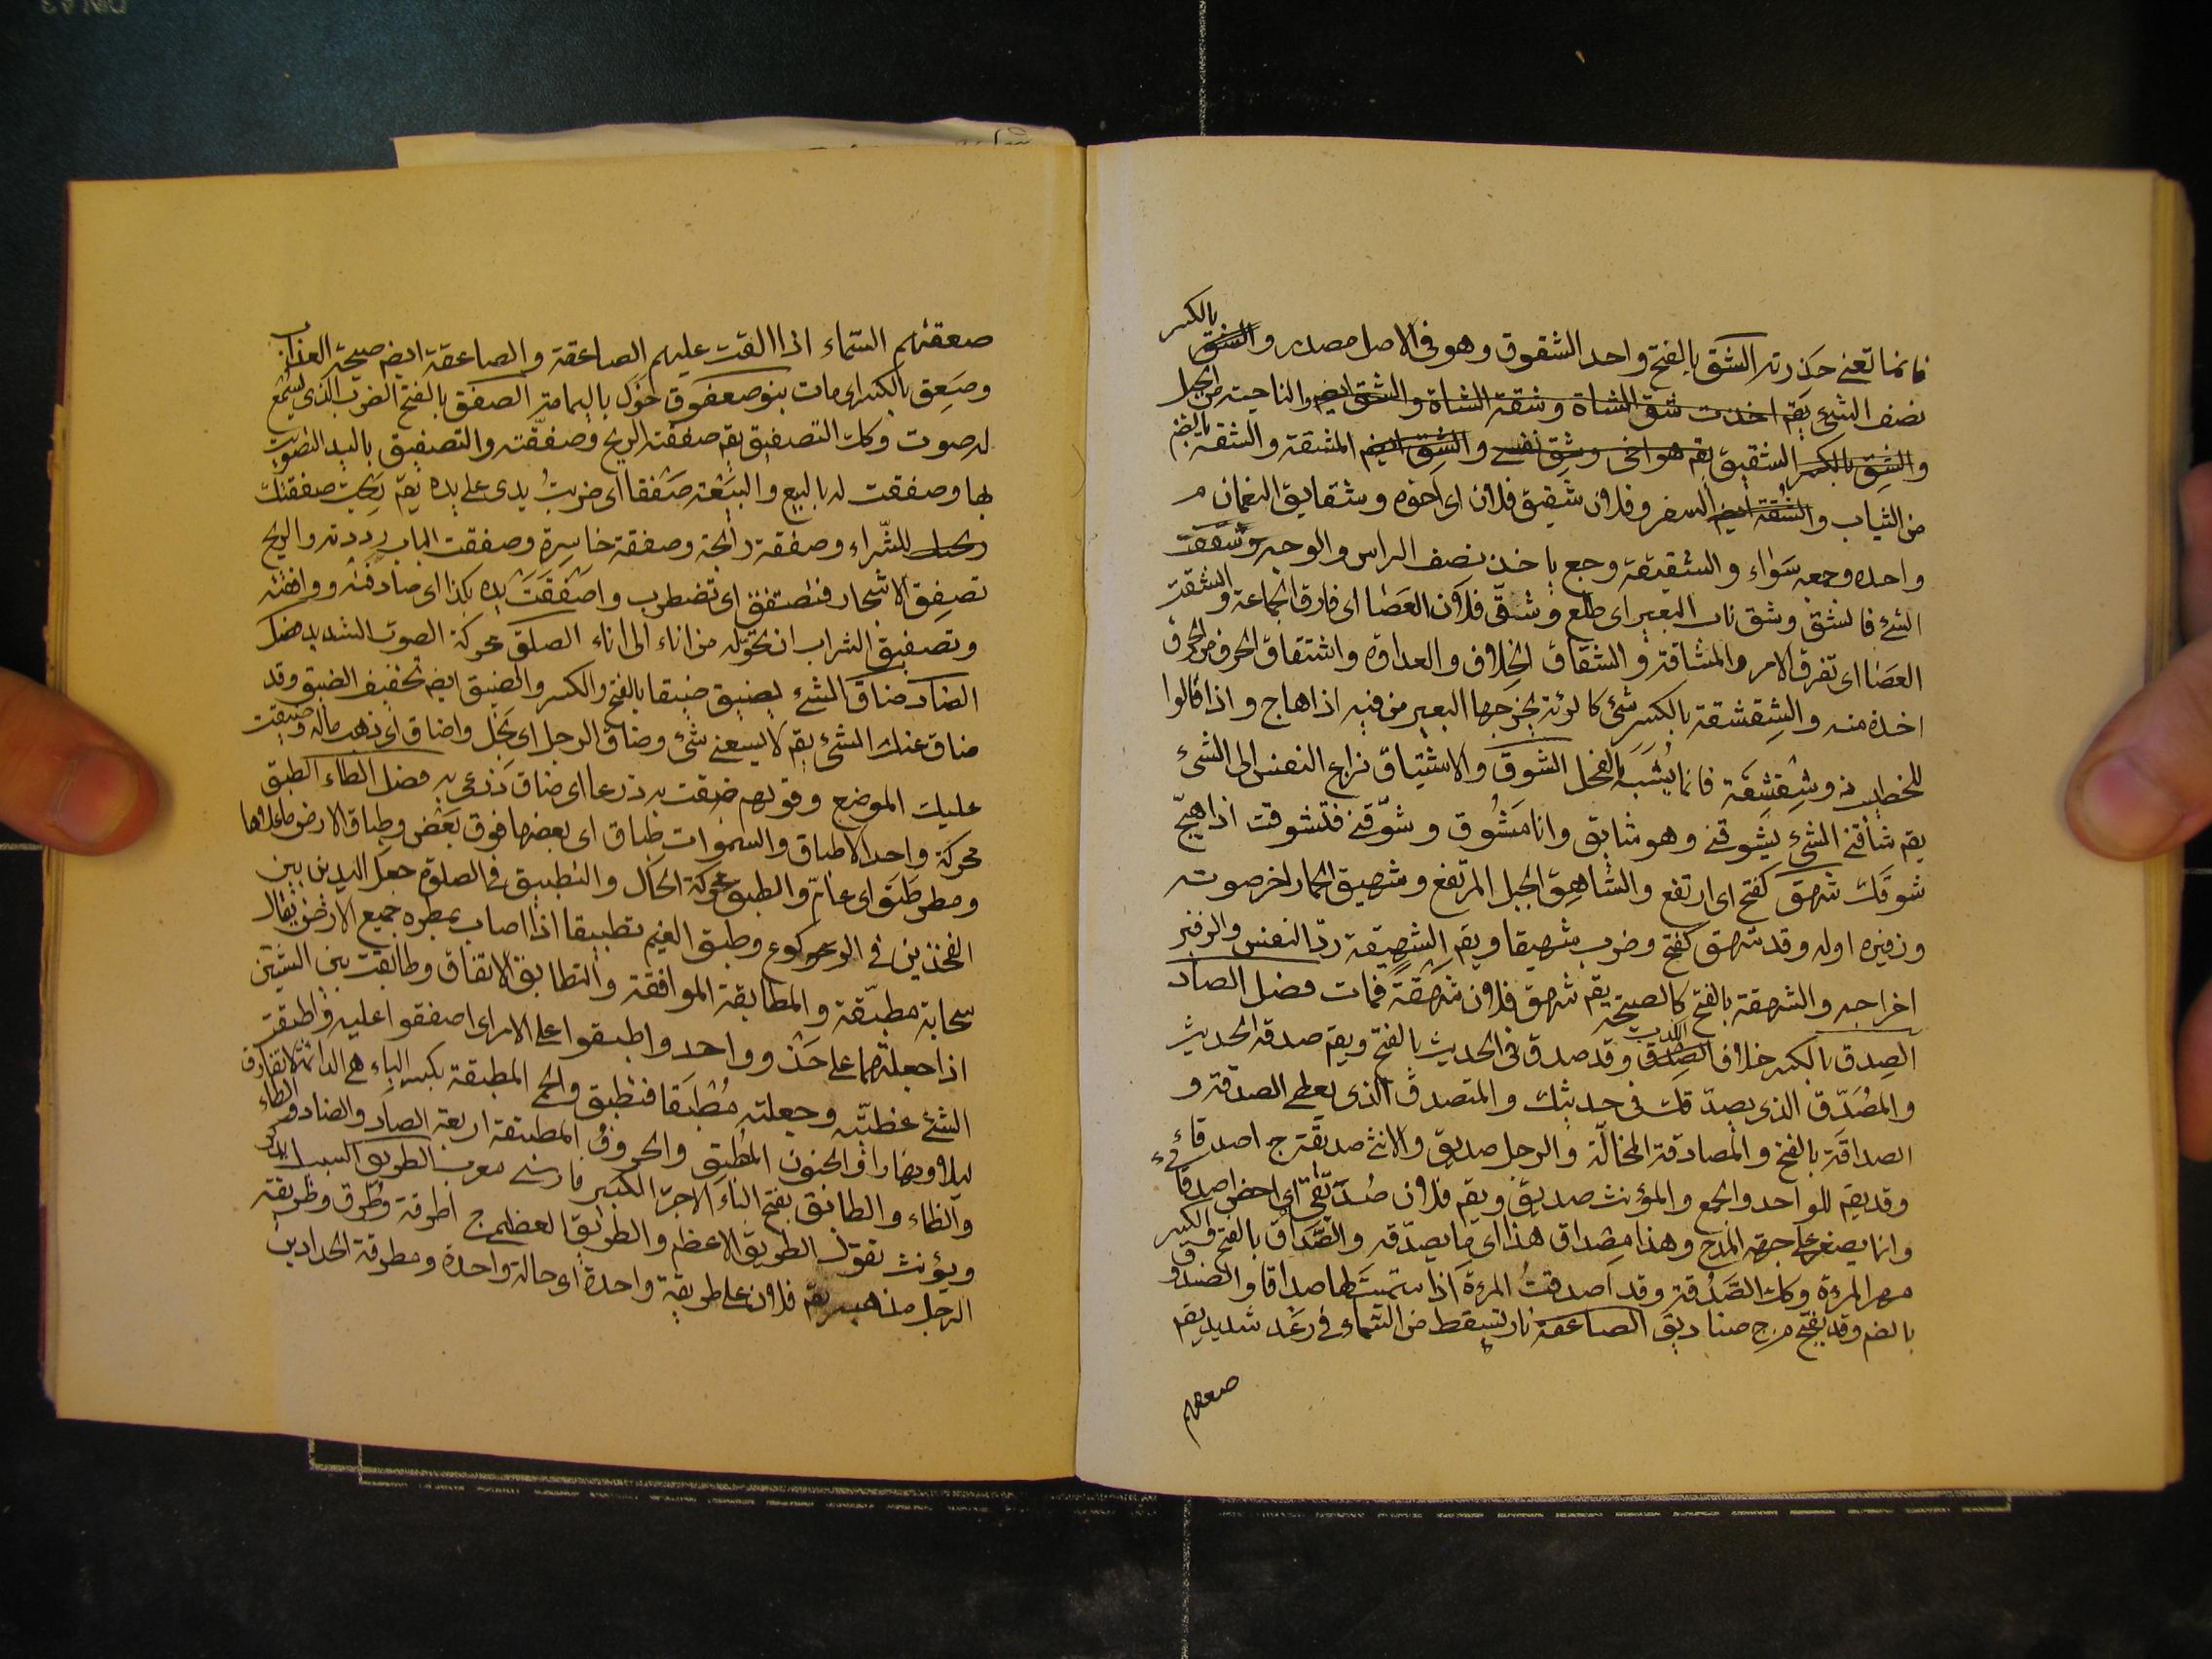 فانما تعني حذرته الشق بالفتح واحد الشقوق وهو في الاصل مصدر والشق بالكسر
نصف الشئ يقم اخذت شق الشاة وشقة الشاة والشق ايضم والناحية من الجبل
والشق بالكسر الشقيق يقم هو اخي وشق نفسي والشق ايضم المشقة والشقة بالضم
من الثياب والشقة ايضم السفر وفلان شقيق فلان اي اخوه وشقايق النعمان م
واحده وجمعه سواء والشقيقة وجع ياخذ نصف الراس والوجه وشققت
الشئ فانشق وشق ناب البعير اي طلع وشق فلان العصا اي فارق الجماعة وانشقت
العصا اي تفرق الامر والمشاقة والشقاق الخلاف والعداوة واشتقاق الحرف من الحرف
اخذه منه والشقشقة بالكسر شئ كالرئة يخرجها البعير من فيه اذا هاج واذا قالوا
للخطيب ذو شقشقة فانما يشبه بالفحل الشوق والاشتياق نزاع النفس الى الشئ
يقم شاقني الشئ يشوقني وهو شايق وانا مشوق وشوقني فتشوقت اذا هيج
شوقك شهق كفتح اي ارتفع والشاهق الجبل المرتفع وشهيق الحمار اخر صوت
وزفيره اوله وقد شهق كفتح وضرب شهيقا ويقم الشهيقة رد النفس والزفير
اخراجه والشهقة بالفتح كالصيحة يقم شهق فلان شهقة فمات فصل الصاد
الصدق بالكسر خلاف الصدق الكذب وقد صدق في الحديث بالفتح ويقم صدقه الحديث
والمصدق الذي يصدقك في حديثك والمتصدق الذي يعطي الصدقة و
الصداقة بالفتح والمصادقة المخالة والرجل صديق والانثى صديقة ج اصدقاء
وقد يقم للواحد والجمع والمؤنث صديق ويقم فلان صديقي اي اخص اصدقائي
وانما يصغر على جهة المدح وهذا مصداق هذا اي ما يصدقه والصداق بالفتح والكسر
مهر المرءة وكك الصدقة وقد اصدقت المرءة اذا سميت لها صداقا والصندوق
بالضم وقد يفتح م ج صناديق الصاعقة نار تسقط من السماء في رعد شديد يقم
صعقتهم
صعقتهم السماء اذا القت عليهم الصاعقة والصاعقة ايضم صيحة العذاب
وصعق بالكسر اي مات بنو صعفوق خول باليمامة الصفق بالفتح الضرب الذي يسمع
له صوت وكك التصفيق يقم صفقته الريح وصفقته والتصفيق باليد التصويت
بها وصفقت له بالبيع والبيعة صفقا اي ضربت يدي على يده يقم ربحت صفقتك
للشراء وصفقة رابحة وصفقة خاسرة وصفقت الباب رددته والريح
تصفق الاشجار فتصتفق اي تضطرب واصفقت يده بكذا اي صادفته ووافقته
وتصفيق الشراب ان تحوله من اناء الى اناء الصلق محركة الصوت الشديد فصل
الضاد ضاق الشئ يضيق ضيقا بالفتح والكسر والضيق ايضم تخفيف الضيق وقد
ضاق عنك الشئ يقم لا يسعني شئ وضاق الرجل اي بخل واضاق اي ذهب ماله وضيقت
عليك الموضع وقولهم ضقت به ذرعا اي ضاق ذرعي به فصل الطاء الطبق
محركة واحد الاطباق والسموات طباق اي بعضها فوق بعض وطباق الارض ما علاها
ومطر طبق اي عام والطبق محركة الحال والتطبيق في الصلوة جعل اليدين بين
الفخذين في الركوع وطبق الغيم تطبيقا اذا اصاب بمطره جميع الارض يقال
سحابة مطبقة والمطابقة الموافقة والتطابق الاتفاق وطابقت بين الشيئين
اذا جعلتهما على حذو واحد واطبقوا على الامر اي اصفقوا عليه واطبقت
الشئ غطيته وجعلته مطبقا فتطبق والحمى المطبقة بكسر الباء هي الدائمة لا تفارق
ليلا ونهارا والجنون المطبق والحروف المطبقة اربعة الصاد والضاد والطاء
والظاء والطابق بفتح الباء الاجر الكبير فارسي معرب الطريق السبيل يذكر
ويؤنث تقول الطريق الاعظم والطريق العظمى ج اطرقة وطرق وطريقة
الرجل مذهبه يقم فلان على طريقة واحدة اي حالة واحدة ومطرقة الحدادين